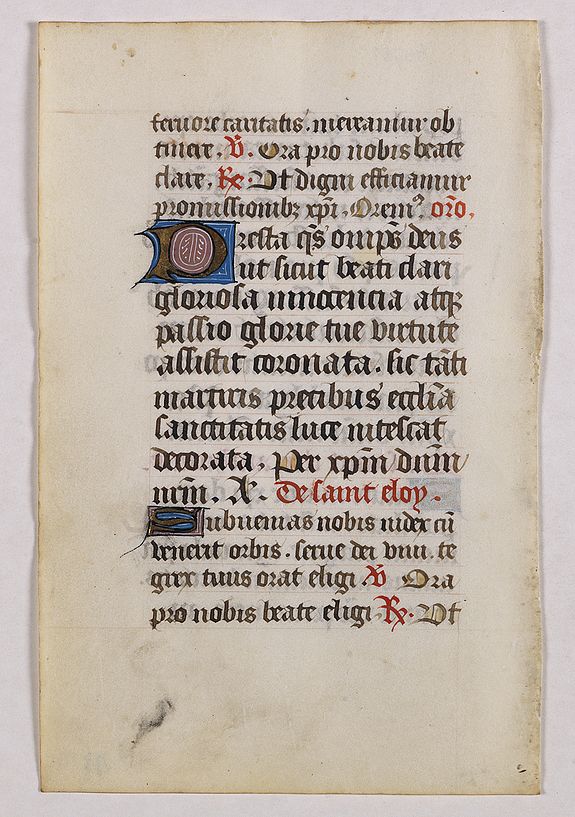 feruore caritatis. mereamur ob
tinere. V. Ora pro nobis beate
clare. R. Ut digni efficiamur
promissionibꝫ xp̄i. Orem⁹. oro̅.
Presta q̄s omp̄s deus
ut sicut beati clari
gloriosa innocencia atqꝫ
passio glorie tue virtute
assistit coronata. sic ta̅ti
martiris precibus eccl̅ia
sanctitatis luce nitescat
decorata. Per xp̅m dn̅m
nr̅m. A. De saint eloy.
Subuenias nobis iudex cu̅
venerit orbis. serue dei viui. te
grex tuus orat eligi V Ora
pro nobis beate eligi R. Ut